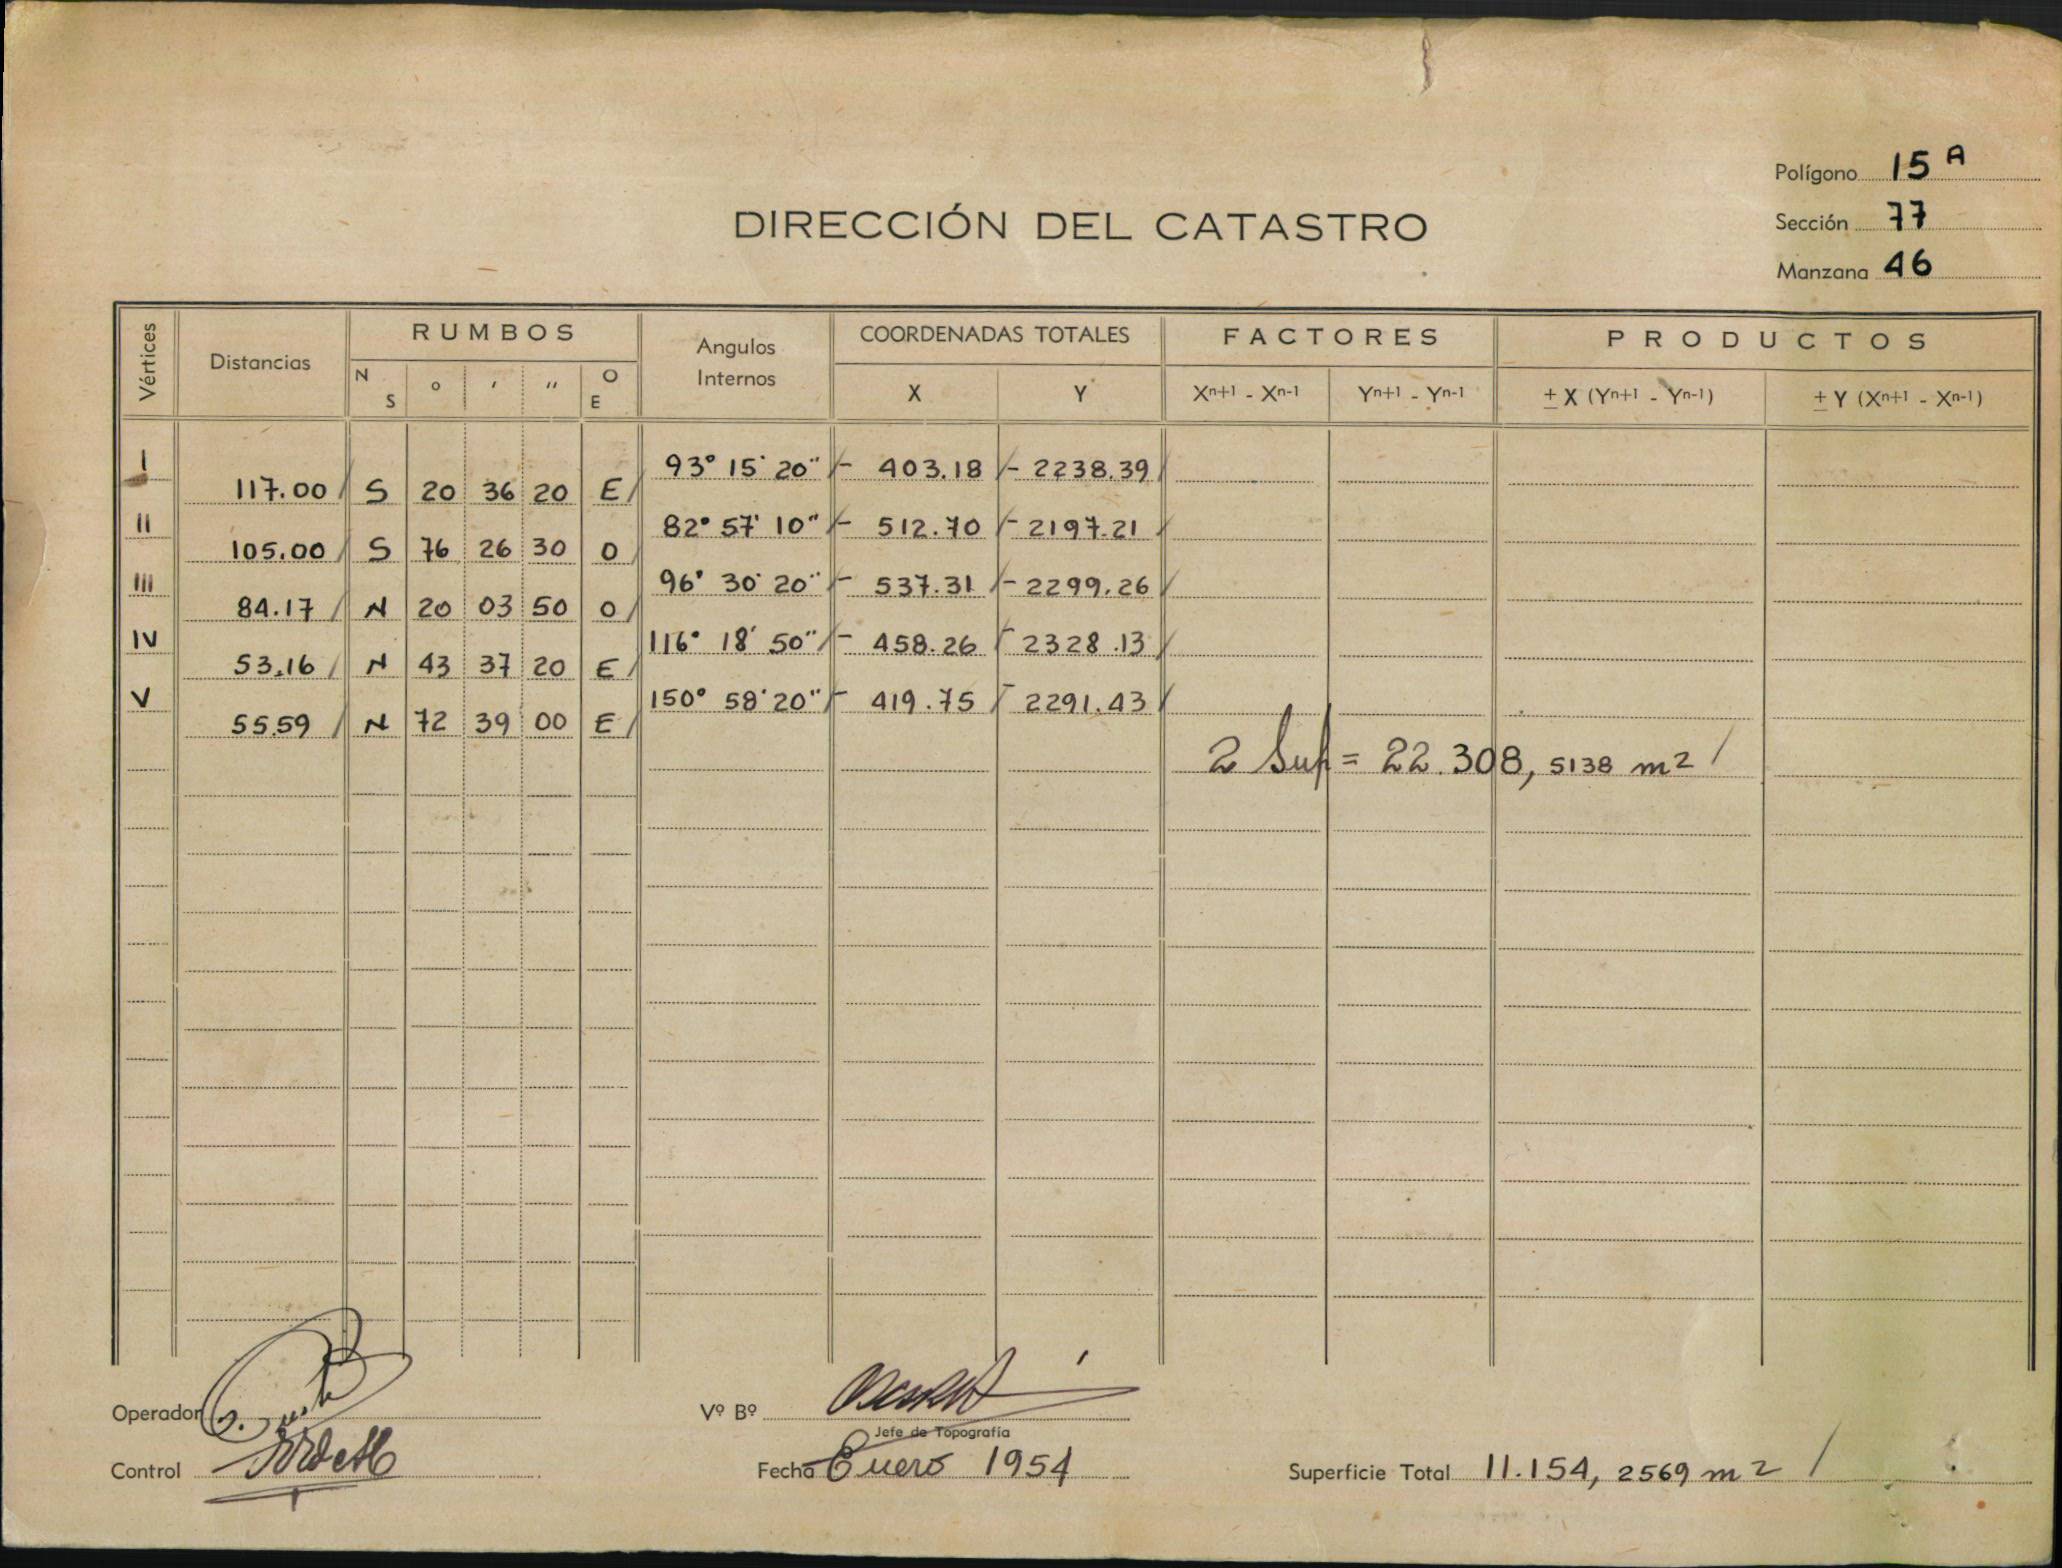 Polígono 15 A
DIRECCIÓN DEL CATASTRO
Sección 77
Manzana 46
Vértices Distancias RUMBOS Angulos Internos COORDENADAS TOTALES FACTORES PRODUCTOS
N S ° ' " O E X Y Xn+1 - Xn-1 Yn+1 - Yn-1 ± X (Yn+1 - Yn-1) ± Y (Xn+1 - Xn-1)
I 93° 15' 20" - 403.18 - 2238.39
117.00 S 20 36 20 E
II 82° 57' 10" - 512.70 - 2197.21
105.00 S 76 26 30 O
III 96° 30' 20" - 537.31 - 2299.26
84.17 N 20 03 50 O
IV 116° 18' 50" - 458.26 - 2328.13
53.16 N 43 37 20 E
V 150° 58' 20" - 419.75 - 2291.43
55.59 N 72 39 00 E
2 Sup = 22.308, 5138 m2
Operador
Vº Bº
Jefe de Topografía
Control
Fecha Enero 1954
Superficie Total 11.154, 2569 m2